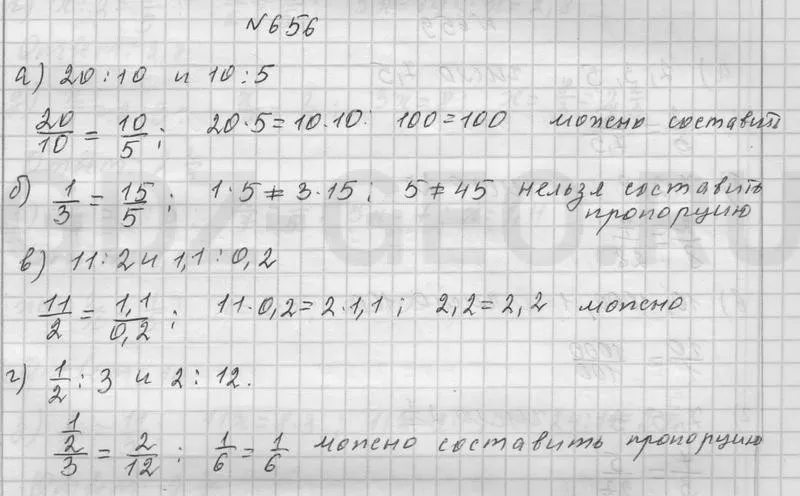 №656
а) 20 : 10 и 10 : 5
20/10 = 10/5 ; 20·5 = 10·10 : 100 = 100 можно составить
б) 1/3 = 15/5 ; 1·5 ≠ 3·15 ; 5 ≠ 45 нельзя составить
пропорцию
в) 11 : 2 и 1,1 : 0,2
11/2 = 1,1/0,2 ; 11·0,2 = 2·1,1 ; 2,2 = 2,2 можно
г) 1/2 : 3 и 2 : 12.
1/2/3 = 2/12 : 1/6 = 1/6 можно составить пропорцию